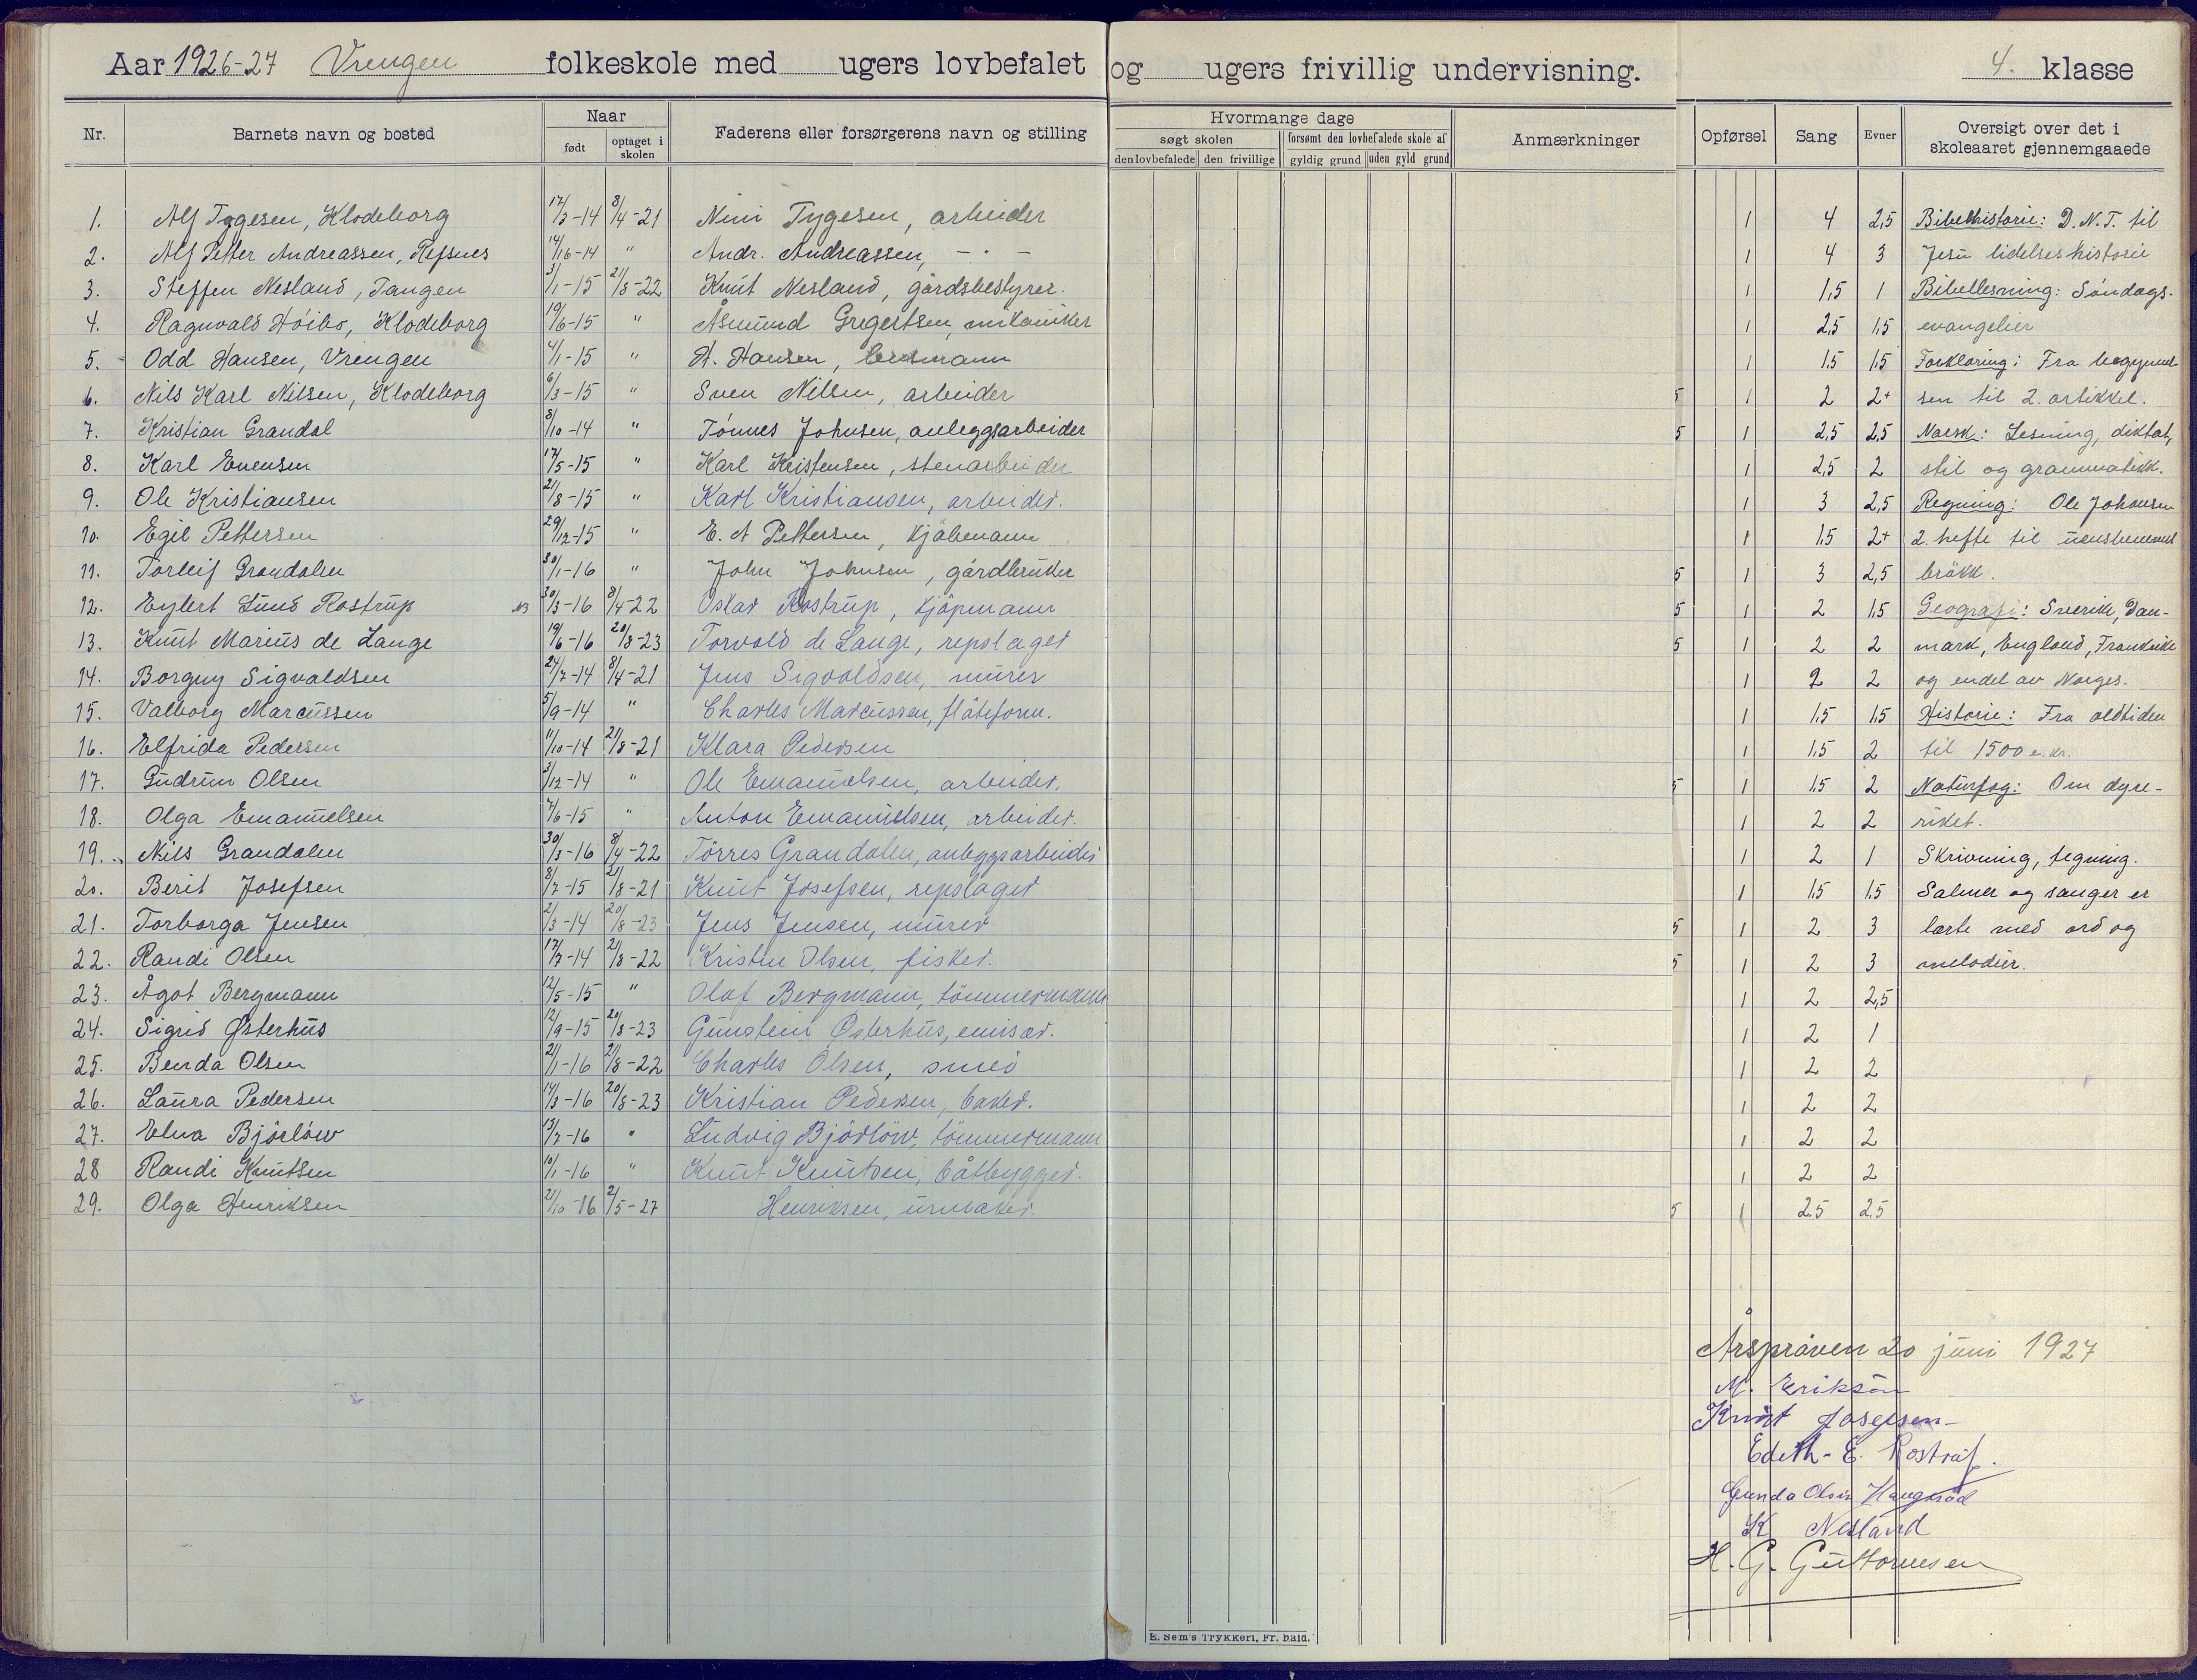 Aar 1926-27 Vrengen folkeskole med ugers lovbefalet og ugers frivillig undervisning. 4. klasse
Nr. Barnets navn og bosted Naar født optaget i skolen Faderens eller forsørgerens navn og stilling Hvormange dage søgt skolen den lovbefalede den frivillige forsømt den lovbefalede skole af gyldig grund uden gyld grund Anmærkninger Opførsel Sang Evner Oversigt over det i skoleaaret gjennemgaaede
1. Alf Tygesen, Klodeborg 17/3-14 8/4-21 Nini Tygesen, arbeider 1 4 2,5 Bibelhistorie: D. N. T. til
2. Alf Petter Andreassen, Refsnes 14/16-14 " Andr. Andreassen, - " - 1 4 3 Jesu lidelseshistorie
3. Steffen Nesland, Tangen 3/1-15 21/8-22 Knut Nesland, gårdsbestyrer. 1 1,5 1 Bibellesning: Söndags-
4. Ragnvald Höibo, Klodeborg 19/6-15 " Åsmund Gregertsen, mekaniker 1 2,5 1,5 evangelier
5. Odd Hansen, Vrengen 4/1-15 " H. Hansen, lensmann 1 1,5 1,5 Forklaring: Fra begynnel-
6. Nils Karl Nilsen, Klodeborg 6/3-15 " Sven Nilsen, arbeider 5 1 2 2+ sen til 2. artikkel.
7. Kristian Grandal 8/10-14 " Tönnes Johnsen, anleggsarbeider 5 1 2,5 2,5 Norsk: Lesning, diktat,
8. Karl Evensen 17/5-15 " Karl Kristensen, stenarbeider 1 2,5 2 stil og grammatikk.
9. Ole Kristiansen 21/8-15 " Karl Kristiansen, arbeider. 1 3 2,5 Regning: Ole Johansen
10. Egil Pettersen 29/12-15 " E. A Pettersen, kjöbmann 1 1,5 2+ 2. hefte til uensbenevnt
11. Torleif Grandalen 30/1-16 " John Johnsen, gårdbruker 5 1 3 2,5 brökk.
12. Eylert Lund Rostrup 30/3-16 8/4-22 Oskar Rostrup, kjöpmann 5 1 2 1,5 Geografi: Sverike, Dan-
13. Knut Marius de Lange 19/6-16 20/8-23 Torvald de Lange, repslager 5 1 2 2 mark, England, Frankrike
14. Borgny Sigvaldsen 24/7-14 8/4-21 Jens Sigvaldsen, murer 1 2 2 og endel av Norges.
15. Valborg Marcussen 5/9-14 " Charles Marcussen, flåteform. 1 1,5 1,5 Historie: Fra oldtiden
16. Elfrida Pedersen 11/10-14 21/8-21 Klara Pedersen 1 1,5 2 til 1500 e. kr.
17. Gudrun Olsen 3/12-14 " Ole Emanuelsen, arbeider. 5 1 1,5 2 Naturfag: Om dyre-
18. Olga Emanuelsen 7/6-15 " Anton Emanuelsen, arbeider. 1 2 2 riket.
19. Nils Grandalen 30/3-16 8/4-22 Törres Grandalen, anleggsarbeider 1 2 1 Skrivning, tegning.
20. Berit Josefsen 8/7-15 21/8-21 Knut Josefsen, repslager 1 1,5 1,5 Salmer og sanger er
21. Torborga Jensen 2/3-14 20/8-23 Jens Jensen, murer 5 1 2 3 lærte med ord og
22. Randi Olsen 17/7-14 21/8-22 Kristen Olsen, fisker. 5 1 2 3 melodier.
23. Ågot Bergmann 12/5-15 " Olaf Bergmann, tömmermann 1 2 2,5
24. Sigrid Østerhus 12/9-15 20/8-23 Gunstein Østerhus, emisær. 1 2 1
25. Benda Olsen 21/1-16 21/8-22 Charles Olsen, smed 1 2 2
26. Laura Pedersen 14/3-16 20/8-23 Kristian Pedersen, baker. 1 2 2
27. Elna Björlöw 13/7-16 " Ludvig Björlöw, tömmermann 1 2 2
28 Randi Knutsen 10/1-16 " Knut Knutsen, båtbygger. 1 2 2
29. Olga Henriksen 21/10-16 2/5-27 Henriksen, urmaker. 5 1 2,5 2,5
Årsprøven 20 juni 1927
M. Erikson
Knut Josefsen
Edith E. Rostrup.
Gunda Olsen
K Nesland
H. G. Guttormsen
E. Sem's Trykkeri, Fr.hald.